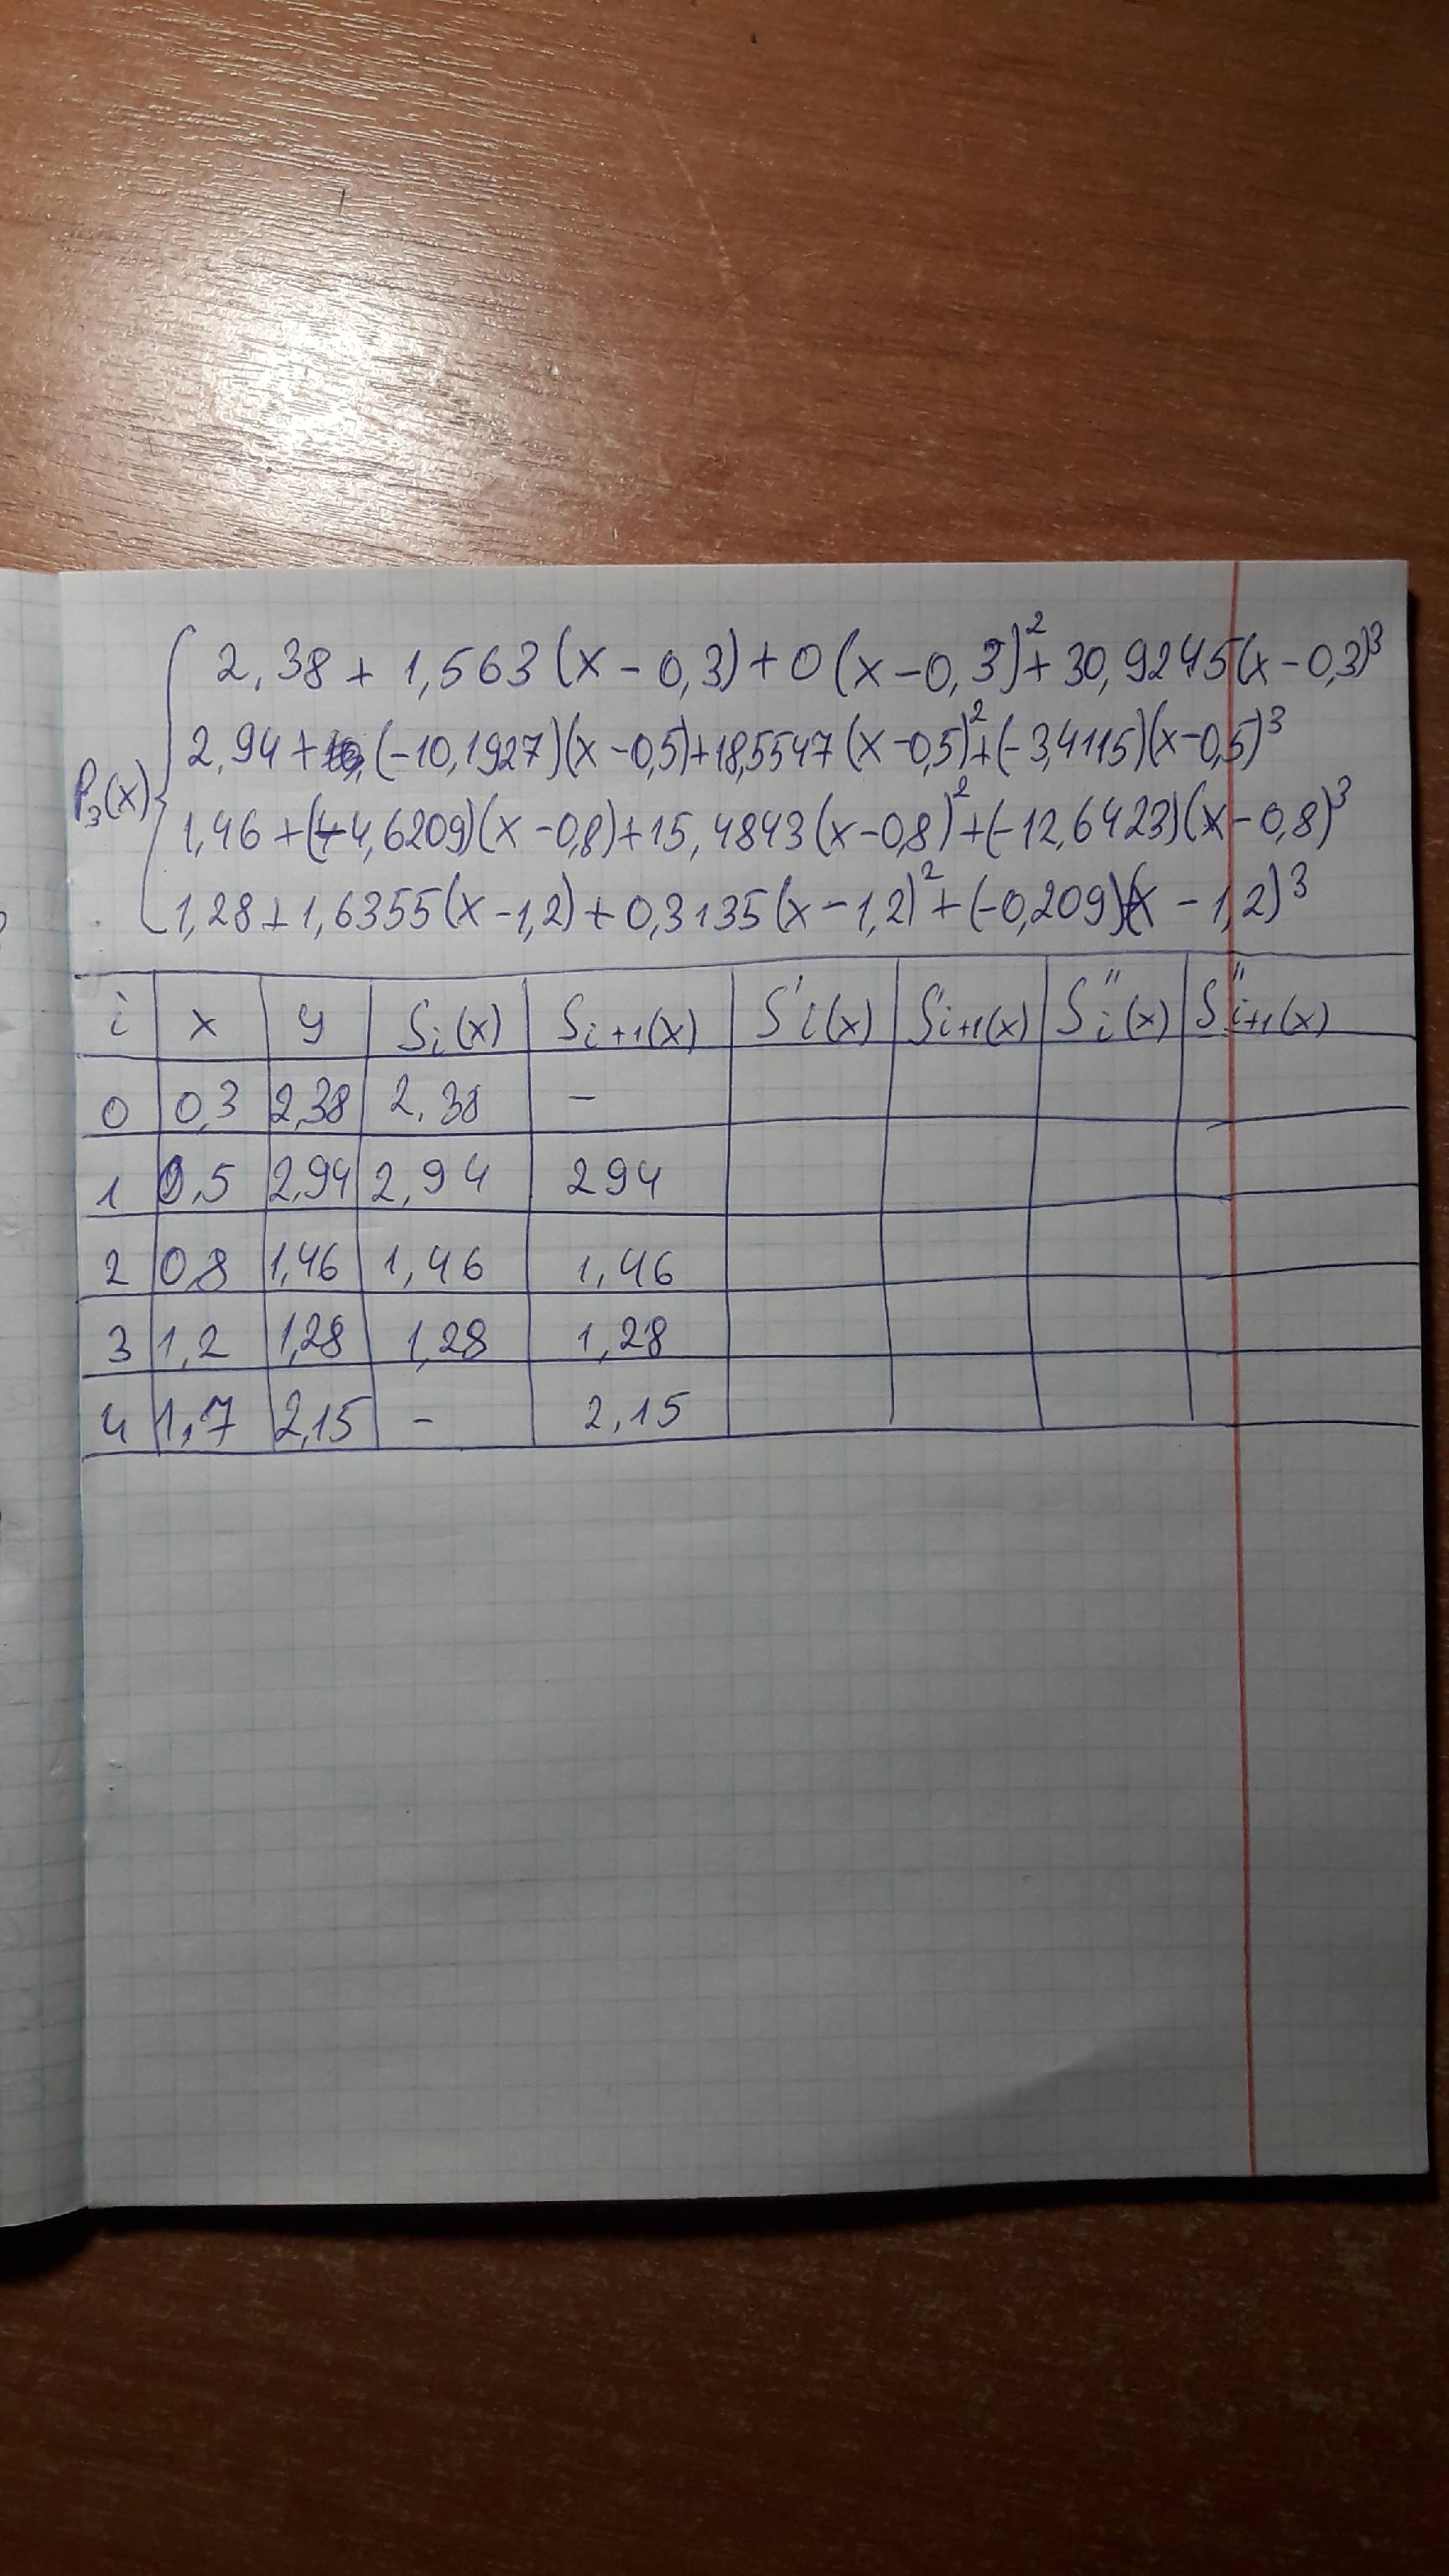 2,38 + 1,563 (x – 0,3) + 0 (x – 0,3)² + 30,9245 (x – 0,3)³
2,94 + (-10,1927)(x – 0,5) + 18,5547 (x – 0,5)² + (-3,4115)(x – 0,5)³
P₃(x)
1,46 + (-4,6209)(x – 0,8) + 15,4843 (x – 0,8)² + (-12,6423)(x – 0,8)³
1,28 + 1,6355 (x – 1,2) + 0,3135 (x – 1,2)² + (-0,209)(x – 1,2)³
i x y Sᵢ(x) Sᵢ₊₁(x) S'ᵢ(x) S'ᵢ₊₁(x) S''ᵢ(x) S''ᵢ₊₁(x)
0 0,3 2,38 2,38 –
1 0,5 2,94 2,94 294
2 0,8 1,46 1,46 1,46
3 1,2 1,28 1,28 1,28
4 1,7 2,15 – 2,15